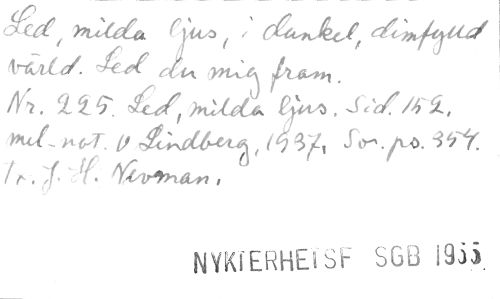 Led, milda ljus, i dunkel, dimfylld
värld. Led du mig fram.
Nr. 225. Led, milda ljus. Sid. 152.
mel-not. O Lindberg, 1937. Sv. ps. 354.
t. J. H. Newman.
NYKTERHETSF SGB 1955